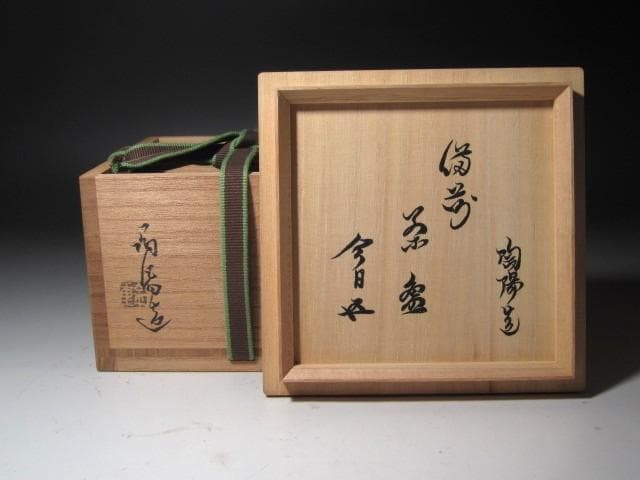 陶陽造
備前
茶盌
今日
陶陽造